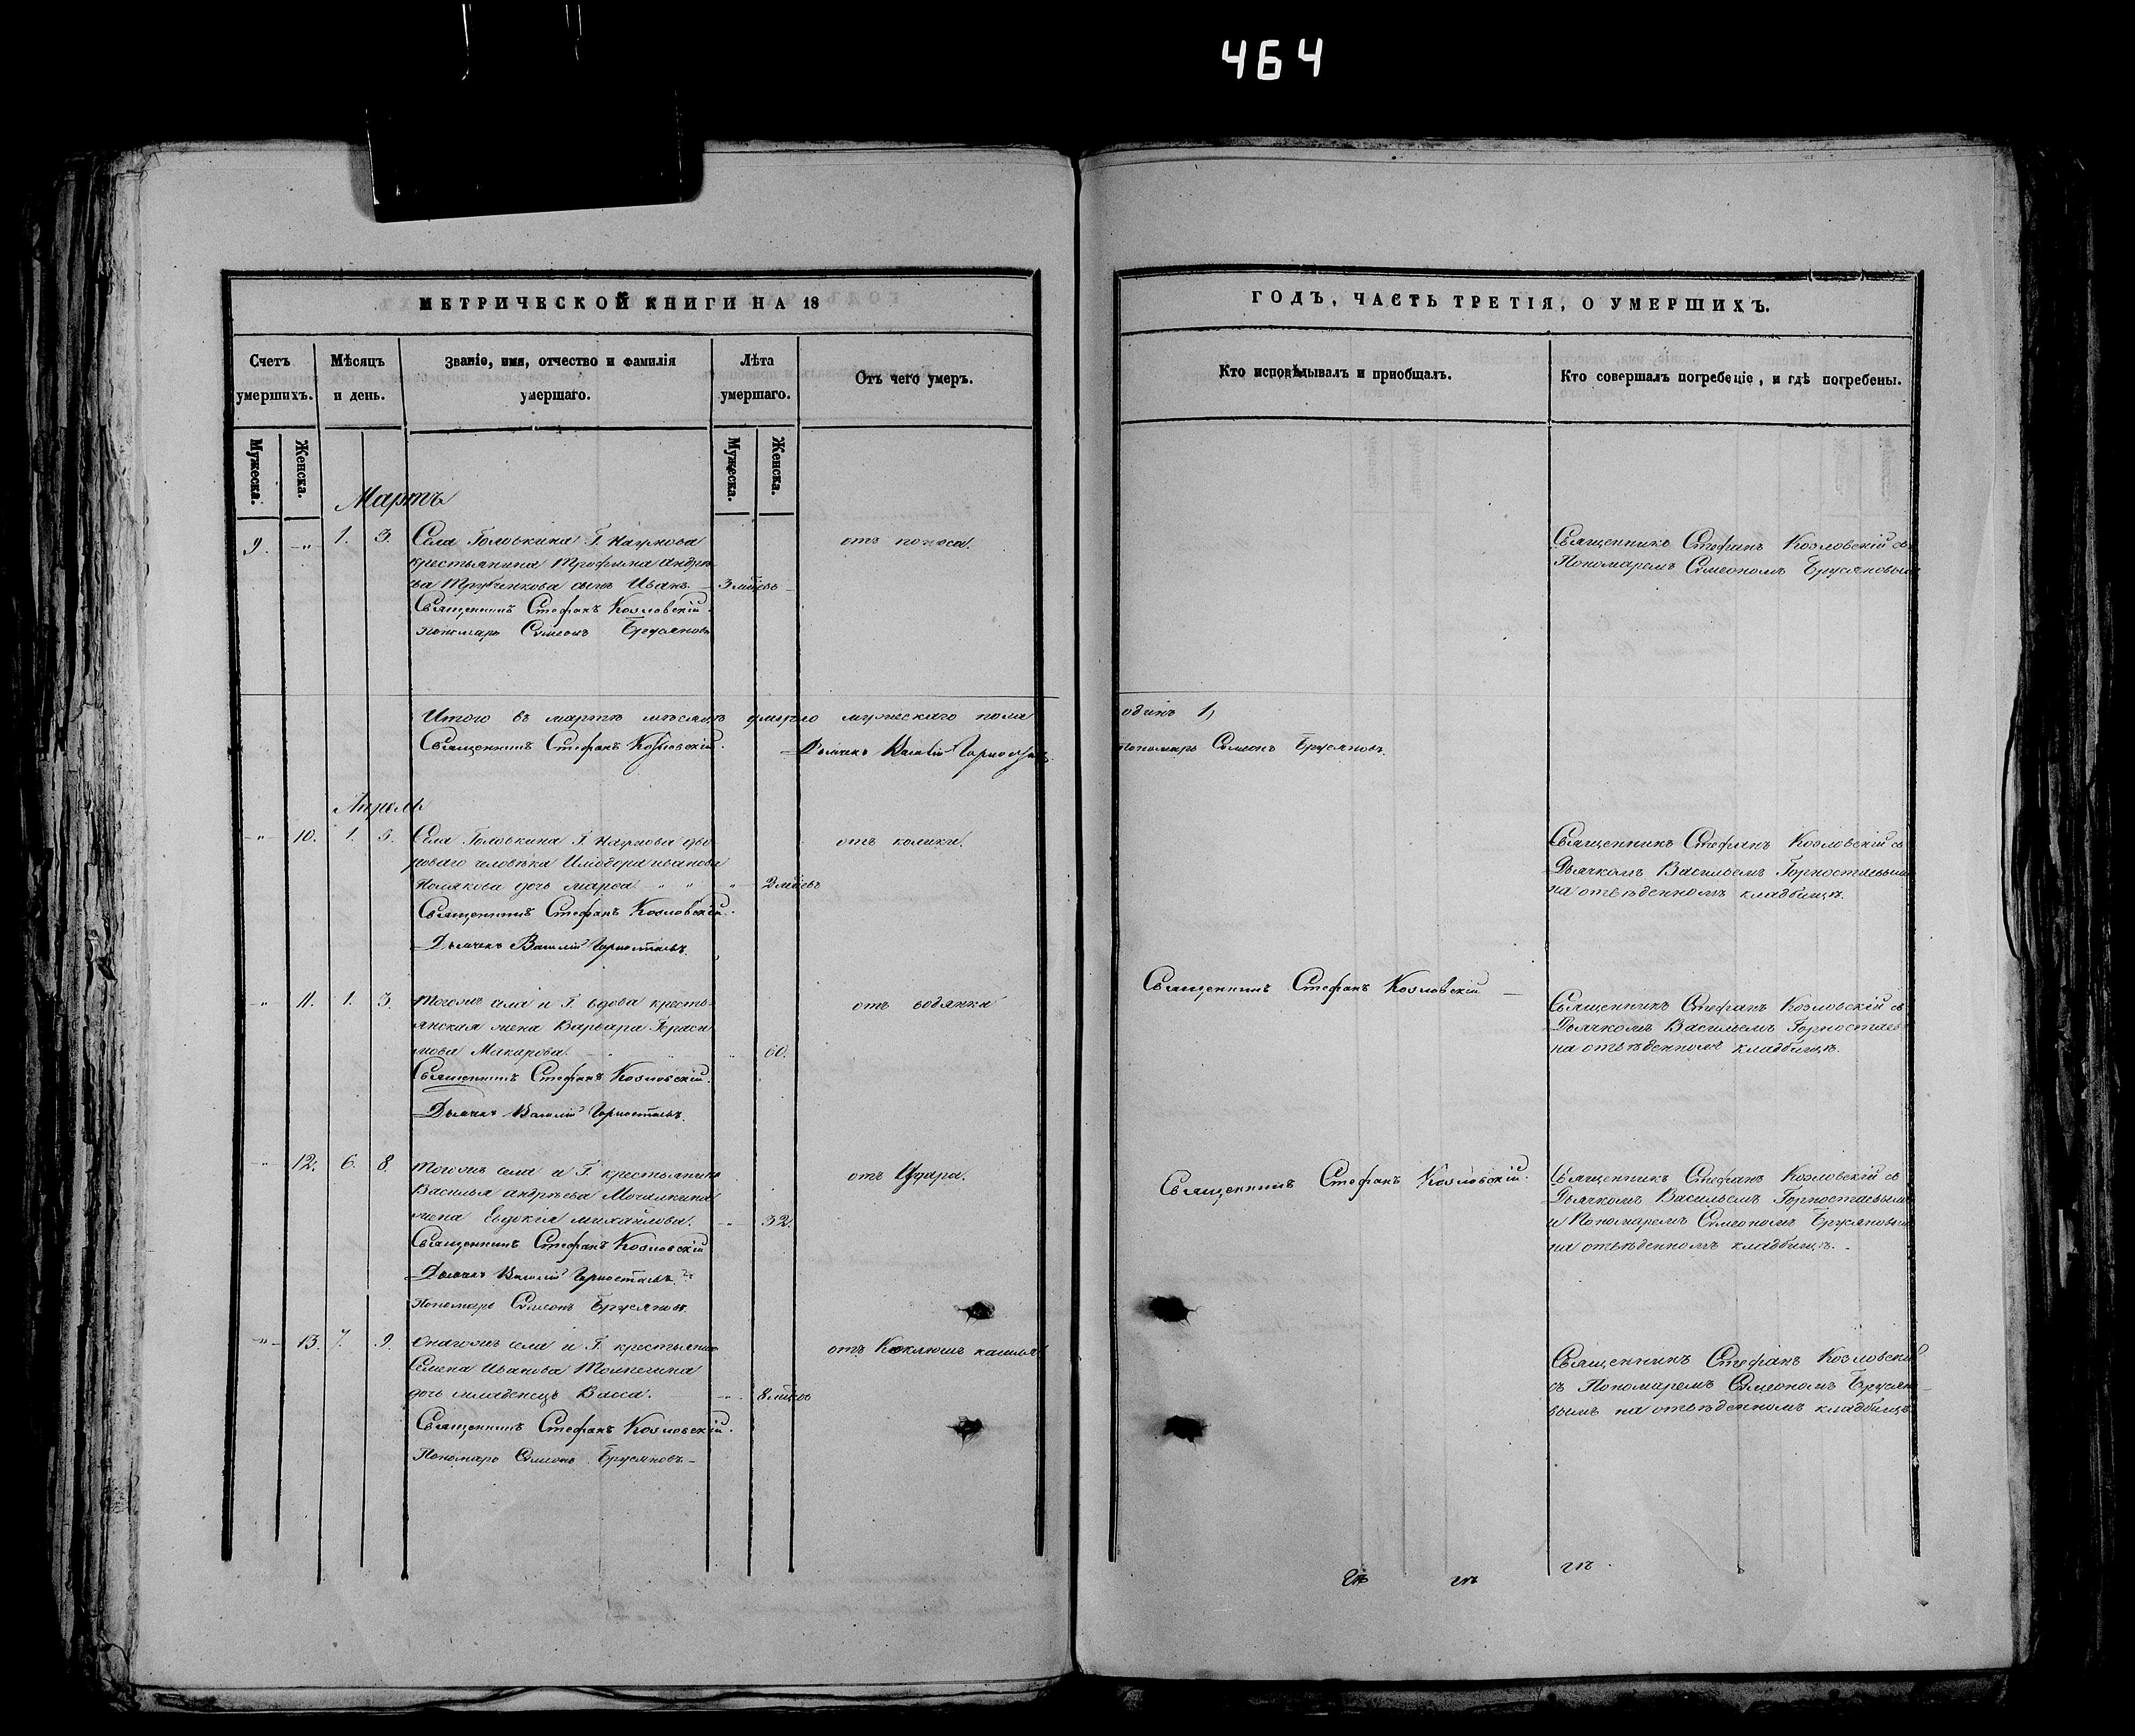 464
МЕТРИЧЕСКОЙ КНИГИ НА 18
Счетъ умершихъ.
Мѣсяцъ и день.
Званіе, имя, отчество и фамилія умершаго.
Лѣта умершаго.
Отъ чего умеръ.
Мужеска.
Женска.
Мужеска.
Женска.
Мартъ
9. -„- 1. 3. Села Головкина Г. Наумова
отъ поноса.
крестьянина Трофима Андрѣ
ева сынъ Иванъ. 3 мѣсвъ
Священникъ Стефанъ Козловскій.
Пономарь Симеонъ Брусяновъ
Итого въ мартѣ мѣсяцѣ умерло мужескаго пола
Священникъ Стефанъ Козловскій.
Дьячекъ Василій Горностаевъ
Апрель
-„- 10. 1. 3. Села Головкина Г. Наумова дво
отъ колики.
роваго человѣка Илиодора Иванова
Полякова дочь Марѳа - „ „ „ 2 мѣсвъ
Священникъ Стефанъ Козловскій.
Дьячекъ Василій Горностаевъ.
-„- 11. 1. 3. Тогожъ села и Г. вдова кресть
отъ водянки
янская жена Варвара Гераси
мова Макарова. 60.
Священникъ Стефанъ Козловскій.
Дьячекъ Василій Горностаевъ.
-„- 12. 6. 8. Тогожъ села и Г. крестьянина
отъ Удара.
Василья Андрѣева Мочалкина
жена Евдокія Михайлова. -„- 32.
Священникъ Стефанъ Козловскій
Дьячекъ Василій Горностаевъ.
Пономарь Симеонъ Брусяновъ.
-„- 13. 7. 9. Онагожъ села и Г. крестьянина
отъ Коклюша кашлья
Семена Иванова
дочь младенецъ Васса. -„- 8 мѣсвъ
Священникъ Стефанъ Козловскій.
Пономарь Симеонъ Брусяновъ.
ГОДЪ, ЧАСТЬ ТРЕТІЯ, О УМЕРШИХЪ.
Кто исповѣдывалъ и приобщалъ.
Кто совершалъ погребеніе, и гдѣ погребены.
Священникъ Стефанъ Козловскій съ
Пономаремъ Симеономъ Брусяновымъ
одинъ 1,
Пономарь Симеонъ Брусяновъ.
Священникъ Стефанъ Козловскій съ
Дьячкомъ Васильемъ Горностаевымъ
на отвѣденномъ кладбищѣ.
Священникъ Стефанъ Козловскій
Священникъ Стефанъ Козловскій съ
Дьячкомъ Васильемъ Горностаев
на отвѣденномъ кладбищѣ.
Священникъ Стефанъ Козловскій.
Священникъ Стефанъ Козловскій съ
Дьячкомъ Васильемъ Горностаевымъ
и Пономаремъ Симеономъ Брусяновым
на отвѣденномъ кладбищѣ.
Священникъ Стефанъ Козловскій
съ Пономаремъ Симеономъ Брусяно
вымъ на отвѣденномъ кладбищѣ